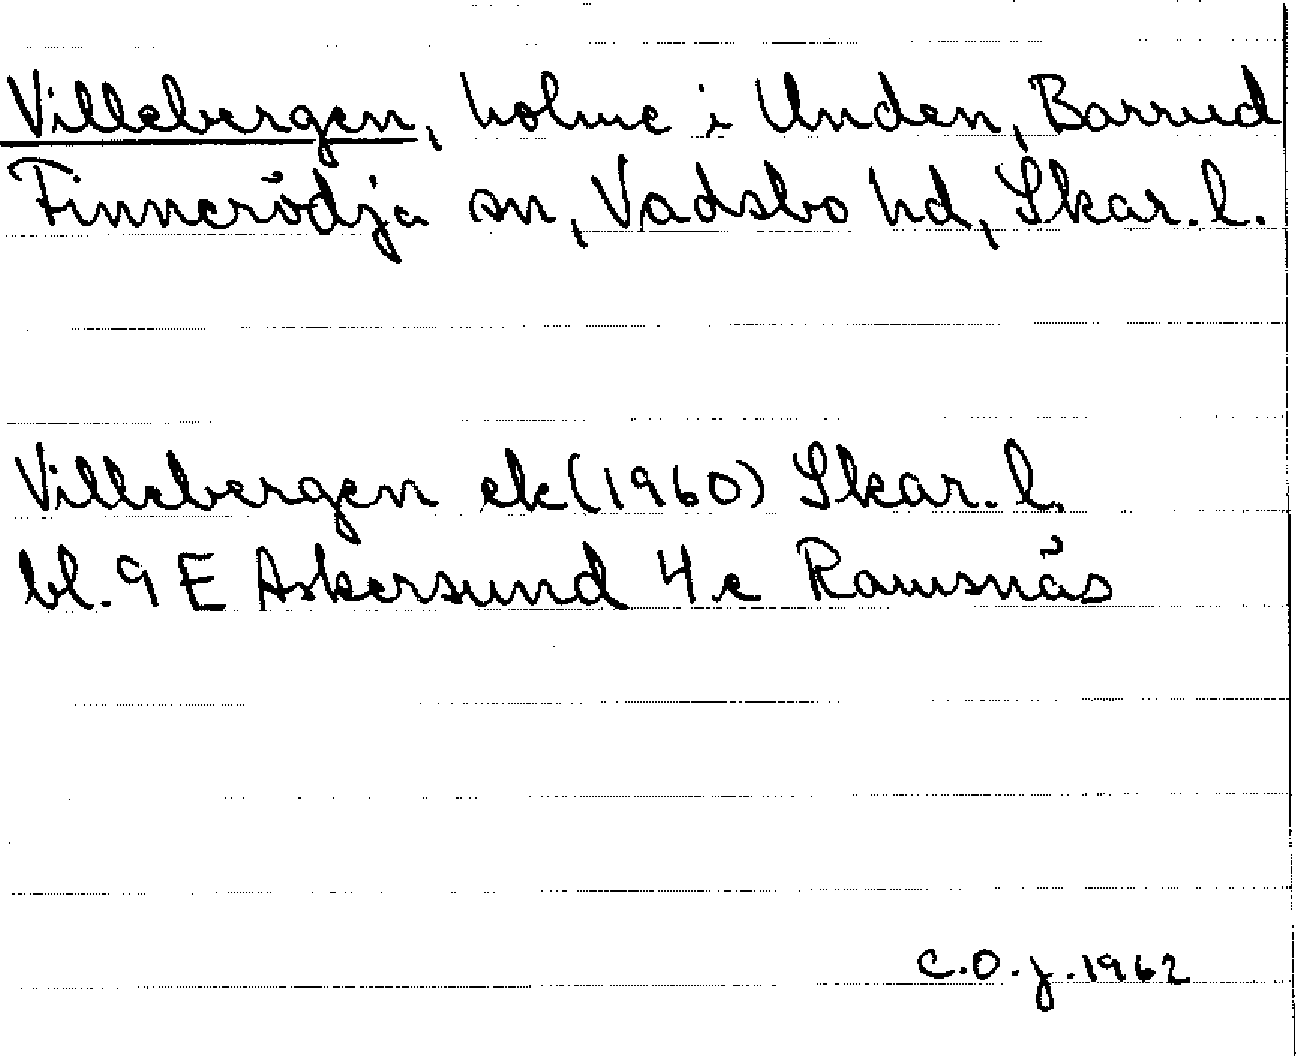 Villebergen, holme i Unden, Barrud
Finnerödja sn, Vadsbo hd, Skar. l.
Villebergen ek (1960) Skar. l.
bl. 9 E Askersund 4 e Ramsnäs
C.O.J. 1962